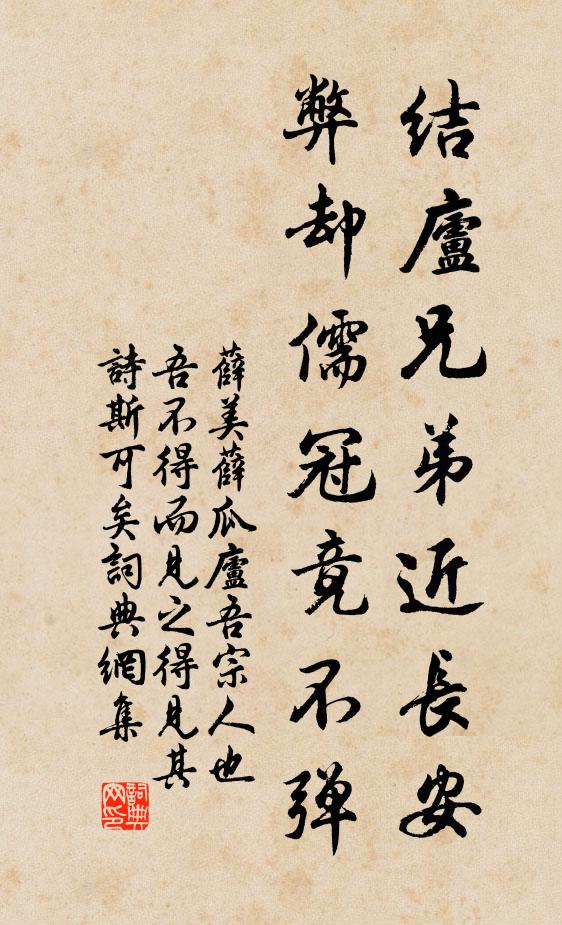 结廬兄弟近長安
弊却儒冠竟不弹
薛美薛瓜廬吾宗人也
吾不得而見之得見其
詩斯可矣詞典網集
詞典
网印